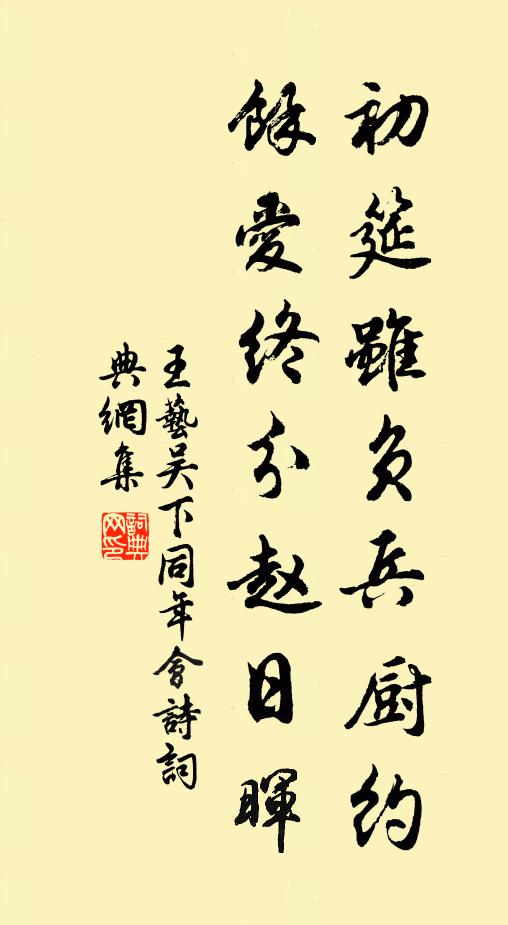 初筵雖負兵厨約
餘愛終分趙日暉
王藝吴下同年會詩詞
典網集
詞典網印